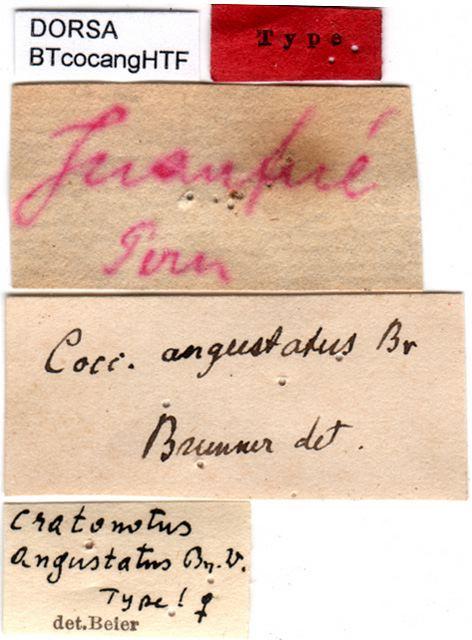 DORSA
BTcocangHTF
Type.
Peru
Cocc. angustatus Br
Brunner det.
Cratonotus
angustatus Br. V.
Type! ♀
det. Beier